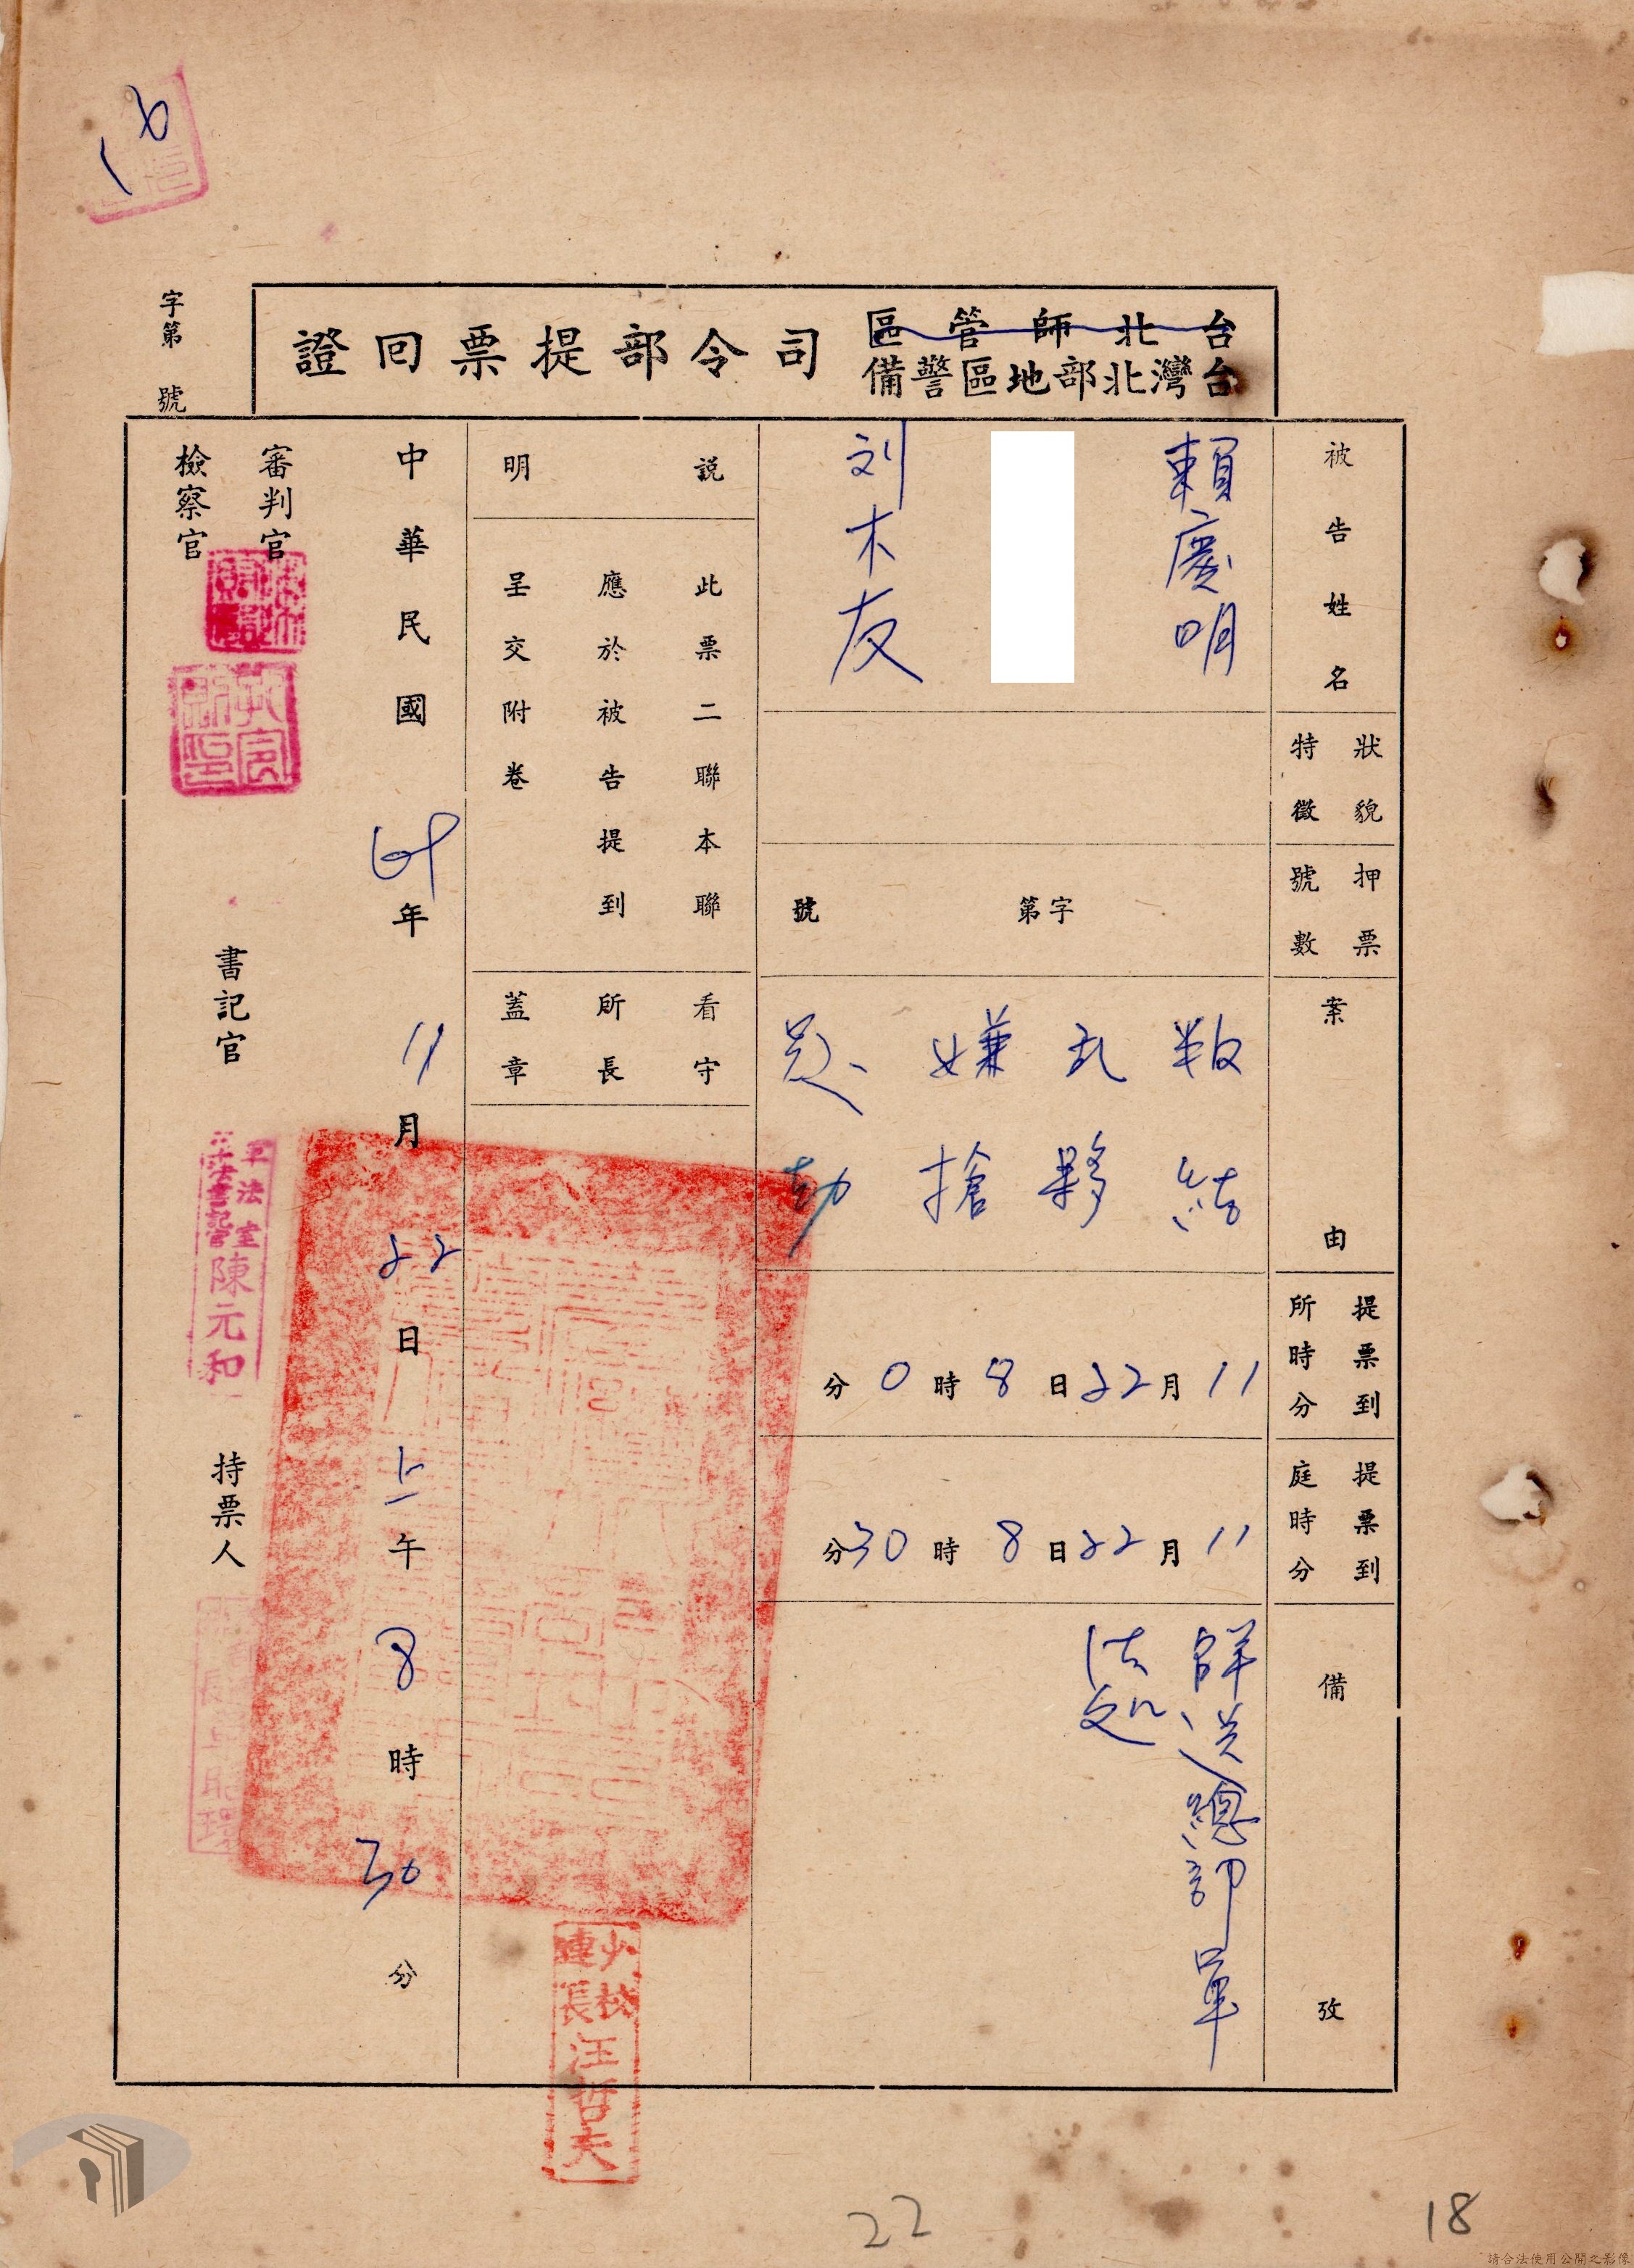 字第 號
台北師管區
台灣北部地區警備
司令部提票回證
被告姓名
賴慶明
刘木友
狀貌特徵
押票號數
字第 號
案由
叛乱嫌疑
結夥搶劫
提票到所時分
11月22日8時0分
提票到庭時分
11月22日8時30分
備攷
解送總部軍
法処
說明
此票二聯本聯
應於被告提到
呈交附卷
看守所長蓋章
少校連長汪哲夫
中華民國64年11月22日上午8時30分
審判官
檢察官
書記官
軍法室
陳元和
持票人
22
18
請合法使用公開之影像